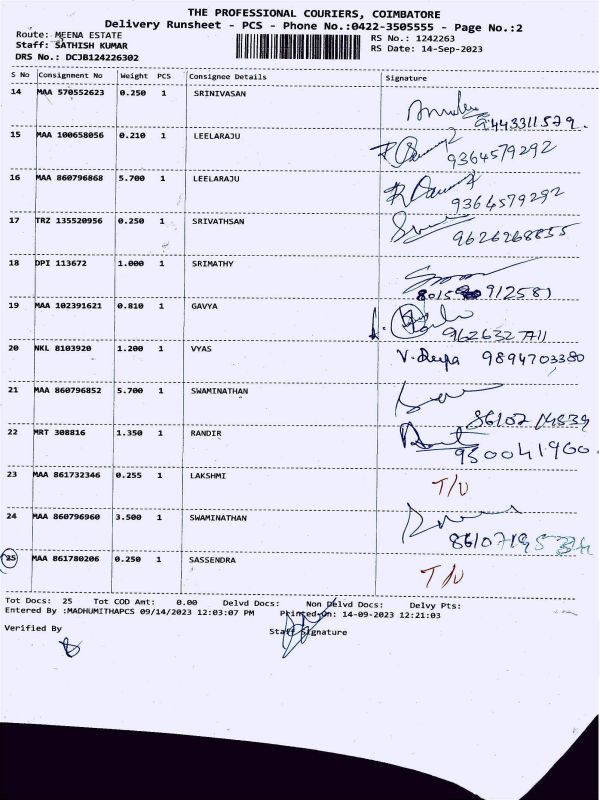 THE PROFESSIONAL COURIERS, COIMBATORE
Delivery Runsheet - PCS - Phone No.:0422-3505555 - Page No.:2
Route: MEENA ESTATE
RS No.: 1242263
Staff: SATHISH KUMAR
RS Date: 14-Sep-2023
DRS No.: DCJB124226302
S No Consignment No Weight PCS Consignee Details Signature
14 MAA 570552623 0.250 1 SRINIVASAN
9443311579.
15 MAA 100658056 0.210 1 LEELARAJU
9364579292
16 MAA 860796868 5.700 1 LEELARAJU
9364579292
17 TRZ 135520956 0.250 1 SRIVATHSAN
9626268855
18 DPI 113672 1.000 1 SRIMATHY
8015 912581
19 MAA 102391621 0.810 1 GAVYA
9626327411
20 NKL 8103920 1.200 1 VYAS V. Deepa 9894703380
21 MAA 860796852 5.700 1 SWAMINATHAN
86107
22 MRT 308816 1.350 1 RANDIR
950041900.
23 MAA 861732346 0.255 1 LAKSHMI T/U
24 MAA 860796960 3.500 1 SWAMINATHAN
25 MAA 861780206 0.250 1 SASSENDRA T/U
Tot Docs: 25 Tot COD Amt: 0.00 Delvd Docs: Non Delvd Docs: Delvy Pts:
Entered By :MADHUMITHAPCS 09/14/2023 12:03:07 PM Printed-On: 14-09-2023 12:21:03
Verified By Staff Signature